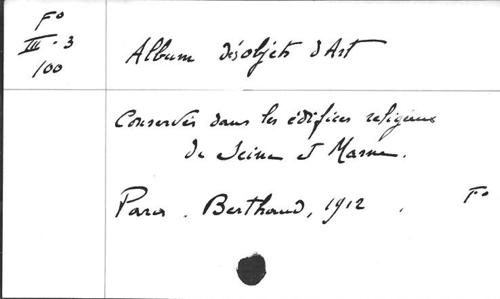 Fo
III. 3
100
Album d'objets d'Art
Conservés dans les édifices religieux
de Seine et Marne.
Paris. Berthaud, 1912. Fo